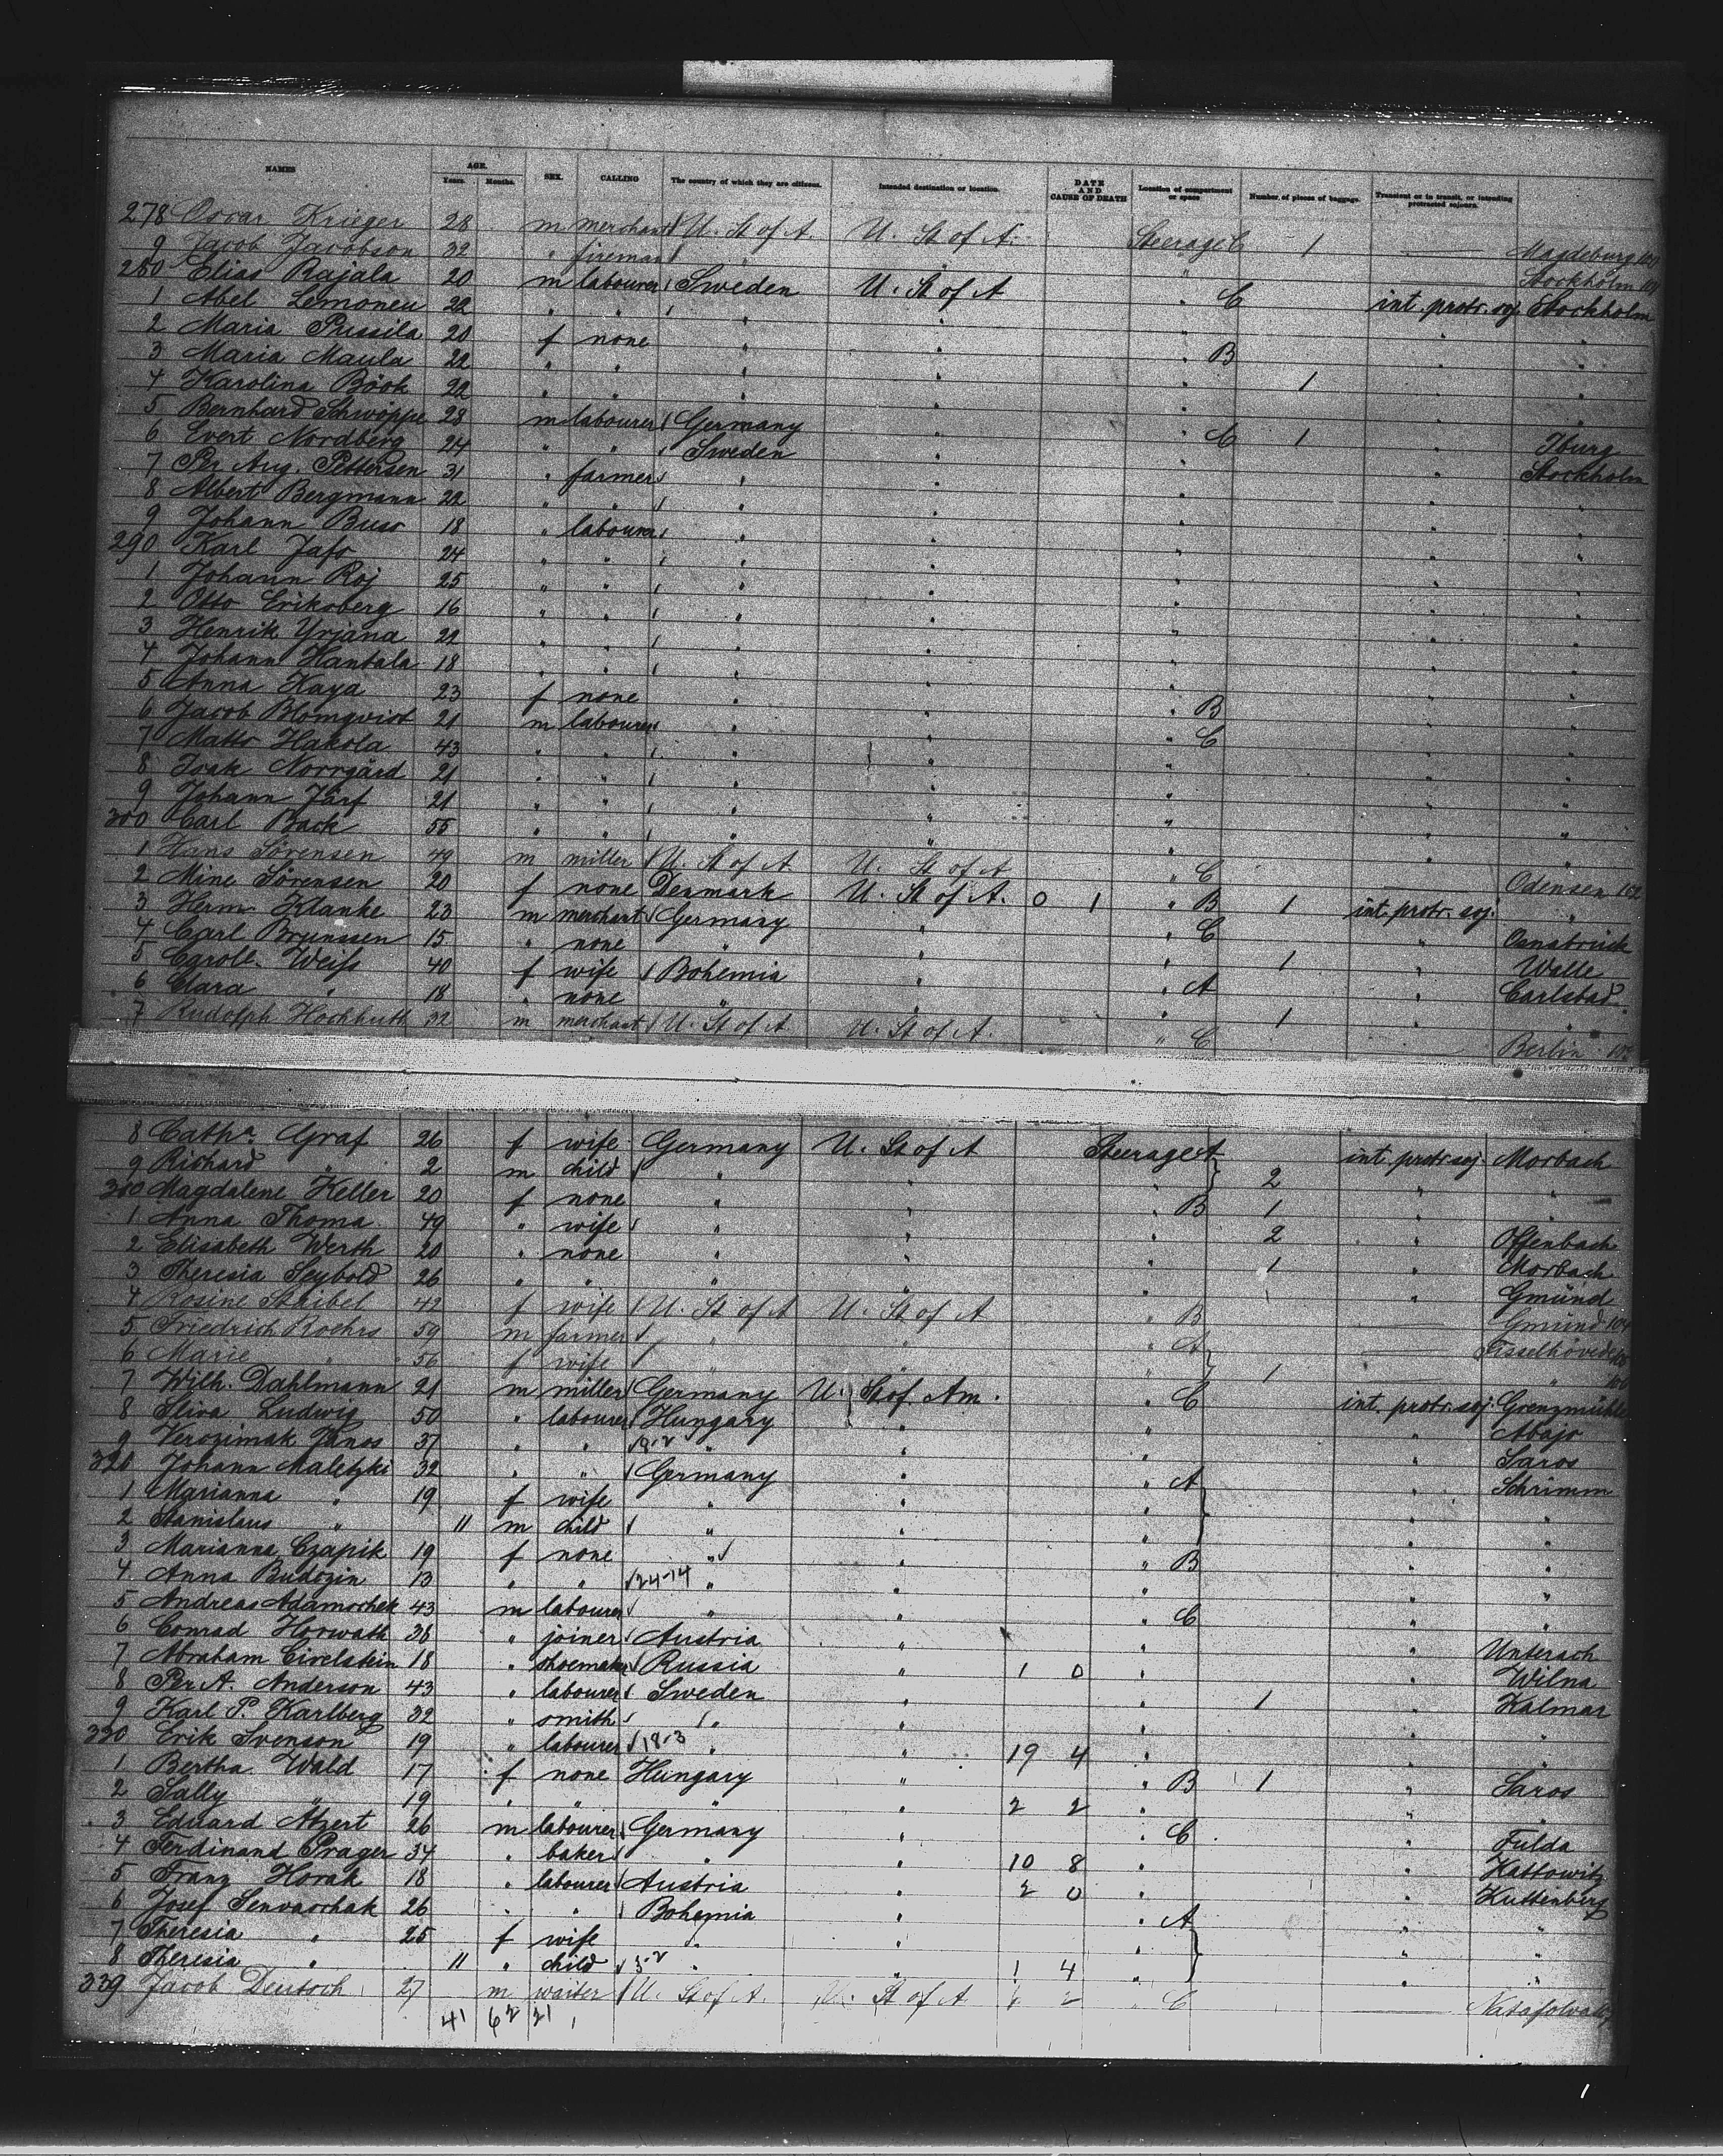 NAMES AGE. SEX. CALLING The country of which they are citizens. Intended destination or location. DATE AND CAUSE OF DEATH Location of compartment or space Number of pieces of baggage. Transient or in transit, or intending protracted sojourn.
Years. Months.
278 Oscar Krieger 28 m merchant U. St of A. U. St of A. Steerage C 1 — Magdeburg
9 Jacob Jacobson 32 " fireman " " — Stockholm
280 Elias Rajala 20 m labourer Sweden U. St of A " C int. protr. soj. Stockholm
1 Abel Lemoneu 22 " " " " " " "
2 Maria Pussila 20 f none " " " B " "
3 Maria Maula 22 " " " " " 1 " "
4 Karolina Böök 22 " " " " " " "
5 Bernhard Schwöppe 28 m labourer Germany " " C 1 " Iburg
6 Evert Nordberg 24 " " Sweden " " " Stockholm
7 Per Aug. Pettersen 31 " farmer " " " " "
8 Albert Bergmann 22 " " " " " " "
9 Johann Buss 18 " labourer " " " " "
290 Karl Jafs 24 " " " " " " "
1 Johann Roj 25 " " " " " " "
2 Otto Eriksberg 16 " " " " " " "
3 Henrik Yrjana 22 " " " " " " "
4 Johann Hantala 18 " " " " " " "
5 Anna Kaya 23 f none " " " B " "
6 Jacob Blomqvist 21 m labourer " " " C " "
7 Matts Hakola 43 " " " " " " "
8 Isak Norrgård 21 " " " " " " "
9 Johann Järf 21 " " " " " " "
300 Carl Back 55 " " " " " " "
1 Hans Sörensen 49 m miller U. St of A. U. St of A " C — Odensen 102
2 Mine Sörensen 20 f none Denmark U. St of A. 0 1 " B 1 int. protr. soj. "
3 Herm. Klanke 23 m merchant Germany " " C " Osnabrück
4 Carl Brunssen 15 " none " " " 1 " Walle
5 Carole. Weiß 40 f wife Bohemia " " A " Carlsbad
6 Clara " 18 " none " " " 1 " "
7 Rudolph Hochhuth 32 m merchant U. St of A U. St of A. " C — Berlin
8 Catha. Graf 26 f wife Germany U. St of A Steerage A int. protr. soj. Morbach
9 Richard " 2 m child " " " 2 " "
300 Magdalene Keller 20 f none " " " B 1 " "
1 Anna Thoma 49 " wife " " " 2 " Offenbach
2 Elisabeth Werth 20 " none " " " 1 " Morbach
3 Theresia Seybold 26 " " " " " Gmünd
4 Rosine Staibel 42 f wife U. St of A U. St of A " B — Gmünd 104
5 Friedrich Roehrs 59 m farmer " " " A —
6 Marie " 56 f wife " " " 1 — "
7 Wilh. Dahlmann 21 m miller Germany U. St of Am. " C int. protr. soj. Grenzmühle
8 Sliva Ludwig 50 " labourer Hungary " " " Abajo
9 Verozimak Janos 37 " " " " " " Saros
320 Johann Maletzki 32 " " Germany " " A " Schrimm
1 Marianna " 19 f wife " " " " "
2 Stanislaus " 11 m child " " " " "
3 Marianna Czapik 19 f none " " " B " "
4. Anna Budozin 13 " " 24-14 " " " " "
5 Andreas Adamschek 43 m labourer " " " C " "
6 Conrad Horwath 36 " joiner Austria " " " Unterach
7 Abraham Cirelstein 18 " shoemaker Russia " 1 0 " " Wilna
8 Per A. Anderson 43 " labourer Sweden " " 1 " Kalmar
9 Karl P. Karlberg 32 " smith " " " " "
330 Erik Svenson 19 " labourer 18-3 " " 19 4 " " "
1 Bertha Wald 17 f none Hungary " " B 1 " Saros
2 Sally " 19 " " " " 2 2 " " "
3 Eduard Atzert 26 m labourer Germany " " C " Fulda
4 Ferdinand Prager 34 " baker " " 10 8 " " Kattowitz
5 Franz Horak 18 " labourer Austria " 2 0 " " Kuttenberg
6 Josef Senvaschak 26 " " Bohemia " " A " "
7 Theresia " 25 f wife " " " " "
8 Theresia " 11 " child " " 1 4 " " "
339 Jacob Deutsch 27 m waiter U. St of A. U. St of A " C —
41 62 21